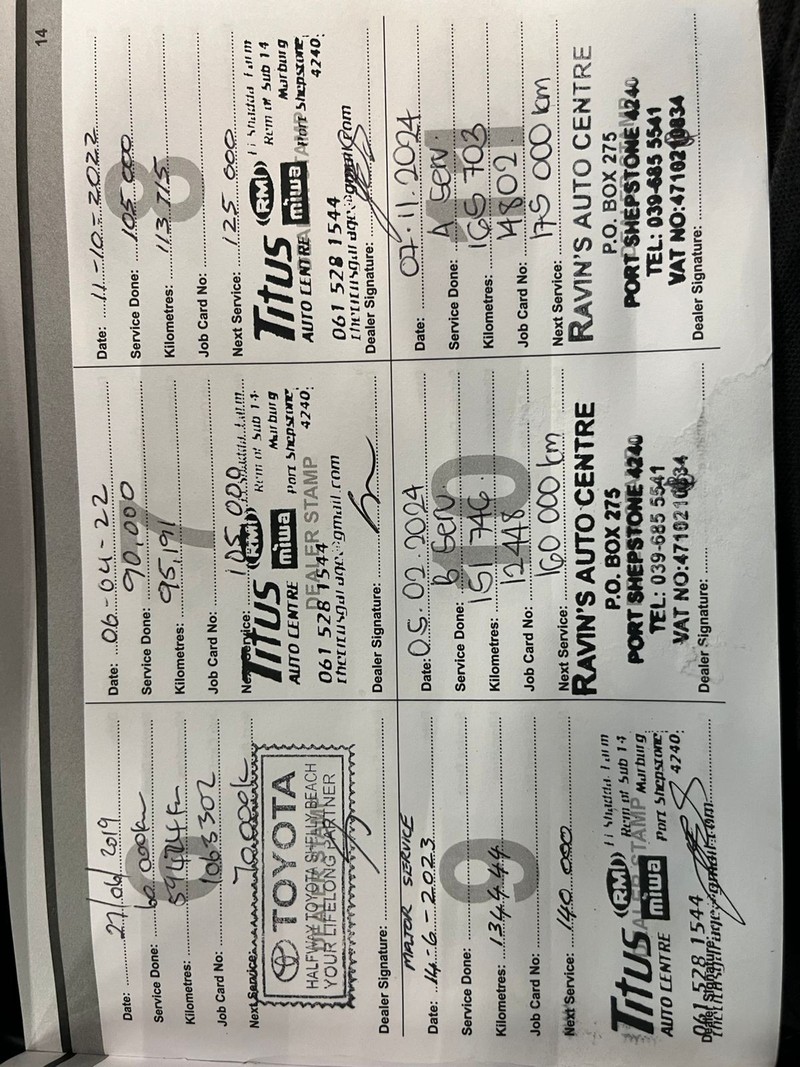 14
Date: 21/06/2019
Service Done: 60 000km
Kilometres: 59474km
Job Card No: 1063302
Next Service: 70 000k
TOYOTA
HALFWAY TOYOTA SHELLY BEACH
YOUR LIFELONG PARTNER
DEALER STAMP
Dealer Signature:
6
Date: 06-04-22
Service Done: 90,000
Kilometres: 95,191
Job Card No:
Next Service: 105 000
Titus RMI
AUTO CENTRE miwa
Rem of Sub 14
Marburg
Port Shepstone
4240
DEALER STAMP
061 528 1544
Dealer Signature:
7
Date: 11-10-2022
Service Done: 105 000
Kilometres: 113 715
Job Card No:
Next Service: 125 000
Titus RMI
AUTO CENTRE miwa
Rem of Sub 14
Marburg
Port Shepstone
4240
061 528 1544
Dealer Signature:
8
MAJOR SERVICE
Date: 14-6-2023
Service Done:
Kilometres: 134444
Job Card No:
Next Service: 140 000
Titus RMI
AUTO CENTRE miwa
Rem of Sub 14
Marburg
Port Shepstone
4240
DEALER STAMP
061 528 1544
Dealer Signature:
9
Date: 05.02.2024
Service Done: B Serv
Kilometres: 151 746
Job Card No: 12448
Next Service: 160 000 km
RAVIN'S AUTO CENTRE
P.O. BOX 275
PORT SHEPSTONE 4240
TEL: 039-685 5541
VAT NO:4710210834
Dealer Signature:
10
Date: 07.11.2024
Service Done: A Serv.
Kilometres: 165 703
Job Card No: 14802
Next Service: 175 000 km
RAVIN'S AUTO CENTRE
P.O. BOX 275
PORT SHEPSTONE 4240
TEL: 039-685 5541
VAT NO:4710210834
Dealer Signature:
11